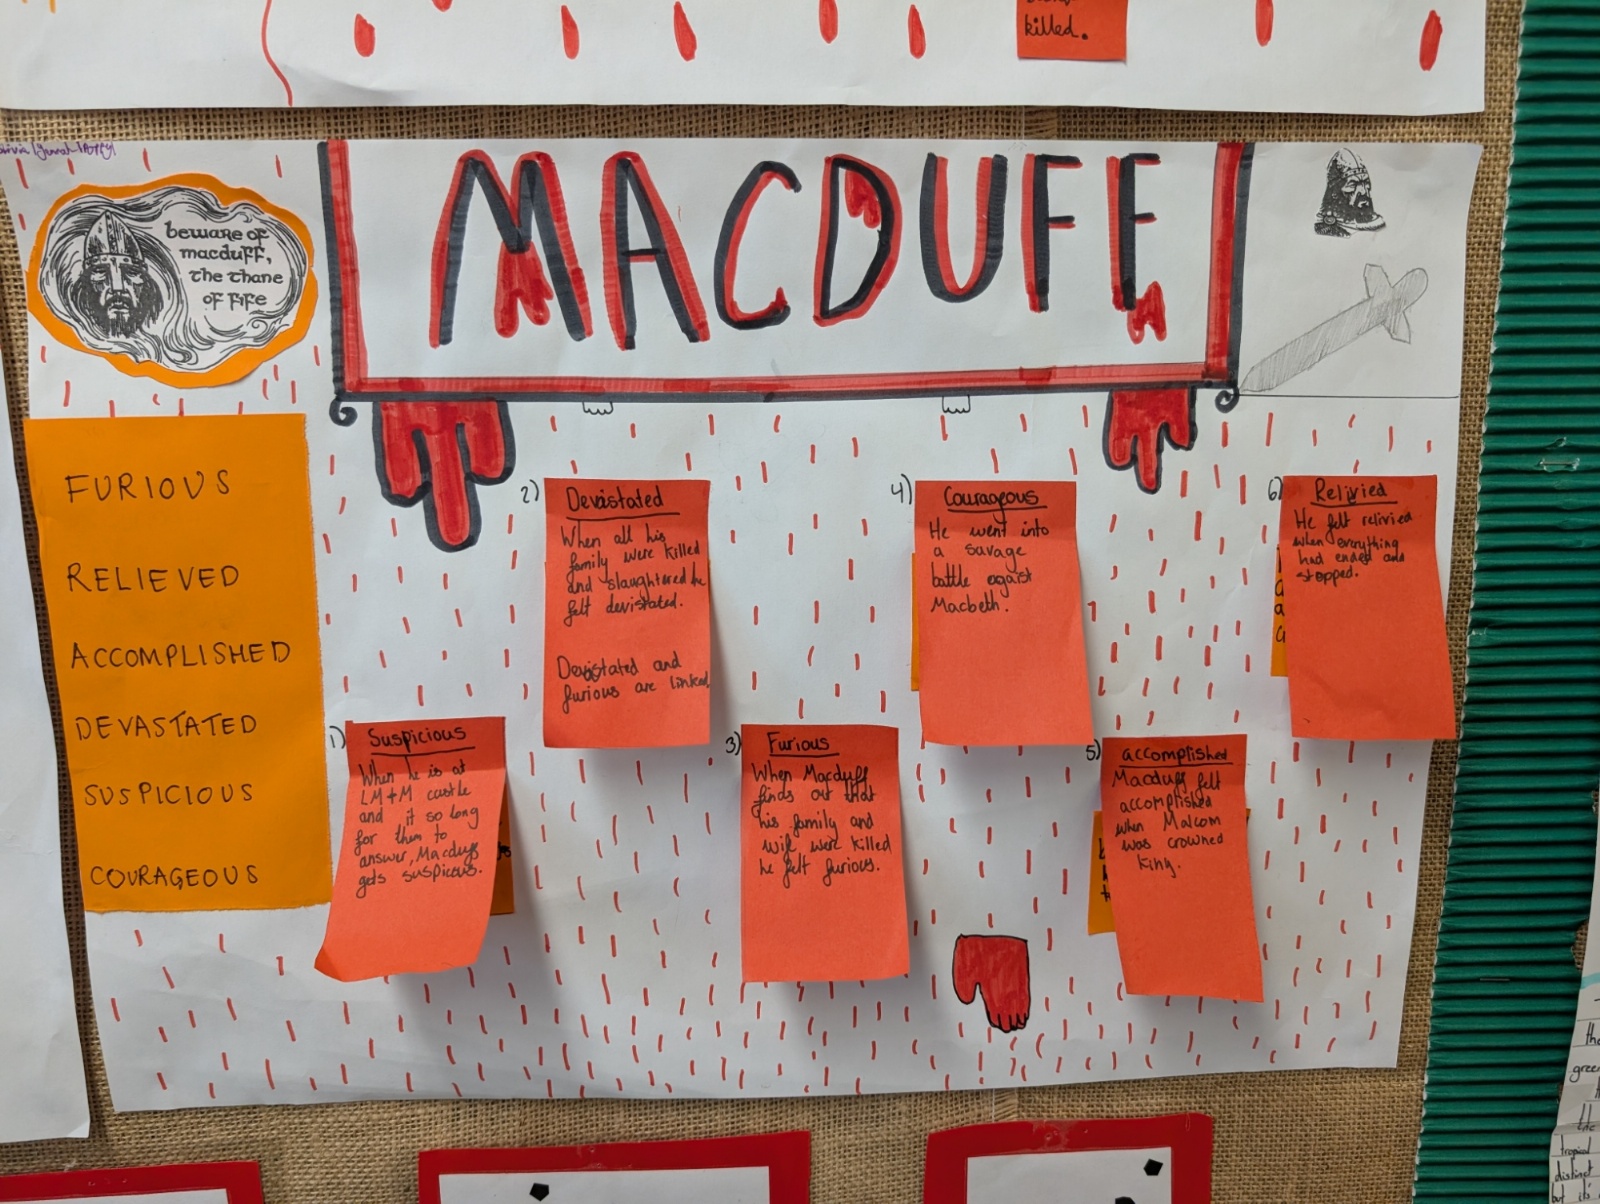 killed.
MACDUFF
beware of
macduff,
the thane
of fife
FURIOUS
RELIEVED
ACCOMPLISHED
DEVASTATED
SUSPICIOUS
COURAGEOUS
1)
Suspicious
When he is at
LM+M castle
and it so long
for them to
answer, Macduff
gets suspicous.
2)
Devastated
When all his
family were killed
and slaughtered he
felt devistated.
Devastated and
furious are linked
3)
Furious
When Macduff
finds out that
his family and
wife were killed
he felt furious.
4)
Courageous
He went into
a savage
battle against
Macbeth.
5)
accomplished
Macduff felt
accomplished
when Malcom
was crowned
king.
6)
Relivied
He felt relivied
when everything
had ended and
stopped.
green
the
tropical
distinct
but it's